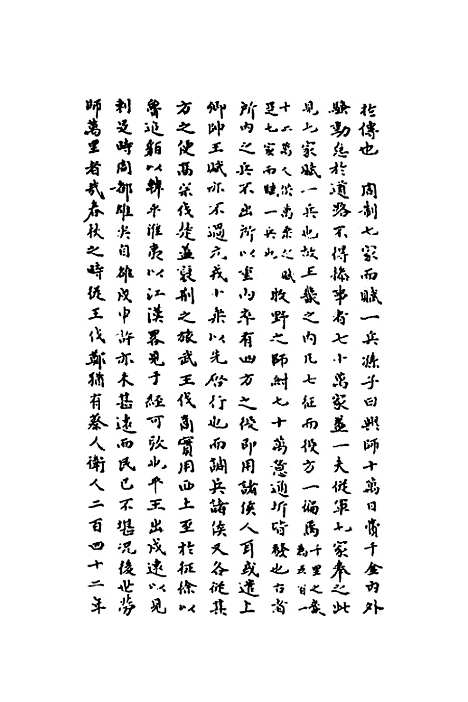 於傳也　周制七家而賦一兵孫子曰興師十萬日費千金內外
騷動怠於道路不得操事者七十萬家蓋一夫從軍七家奉之此
見七家賦一兵也故王畿之內凡七征而役方一徧焉千里之畿為兵百一
十二萬人從萬乘之賦是七家而賦一兵也牧野之師紂七十萬蓋通圻皆發也古者
圻內之兵不出所以重內卒有四方之役即用諸侯人耳或遣上
卿帥王賦亦不過元戎十乘以先啓行也而調兵諸侯又各從其
方之便高宗伐楚蓋裒荆之旅武王伐商實用西土至於征徐以
魯追貊以韓平淮夷以江漢畧見于經可攷也平王出戍遠以見
刺是時周都雒矣自雒戍申許亦未甚遠而民已不堪況後世勞
師萬里者哉春秋之時從王伐鄭猶有蔡人衛人二百四十二年